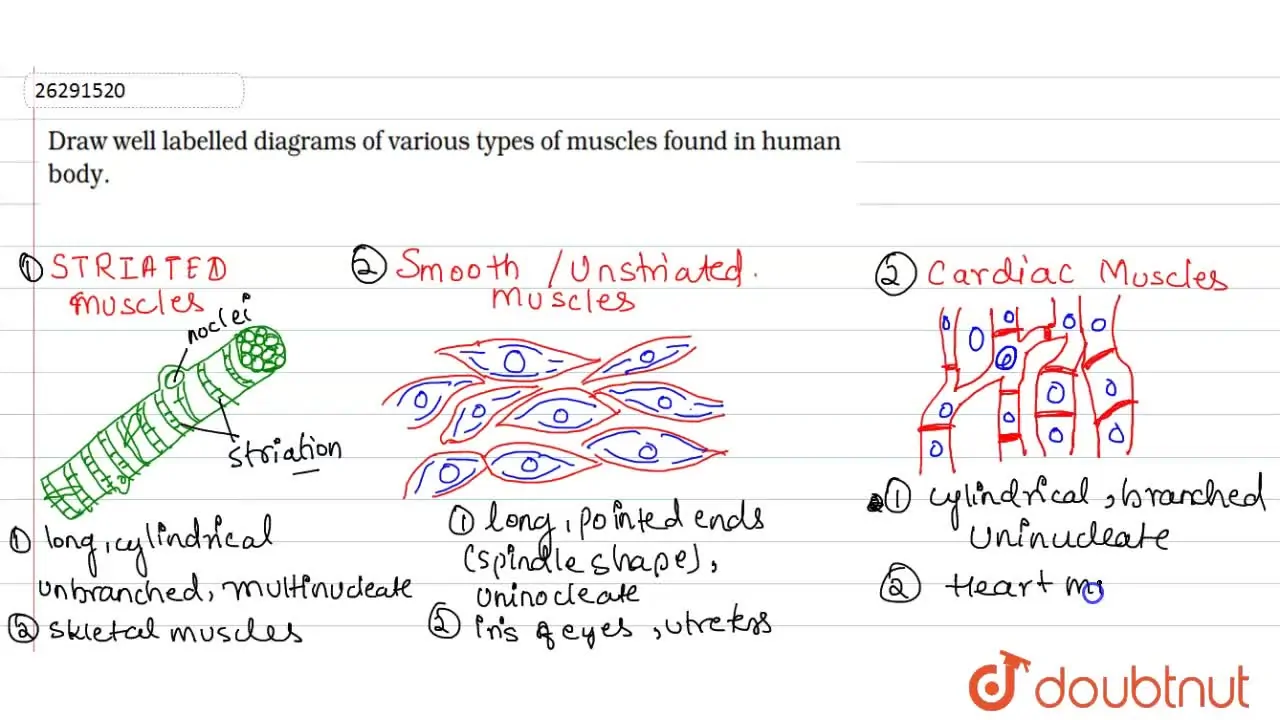 26291520
Draw well labelled diagrams of various types of muscles found in human
body.
① STRIATED
muscles
noclei
striation
① long, cylindrical
unbranched, multinucleate
② skletal muscles
② Smooth / Unstriated.
muscles
① long, pointed ends
(spindle shape),
uninocleate
② iris of eyes, utreters
② Cardiac Muscles
① cylindrical, branched
uninucleate
② Heart mu
doubtnut